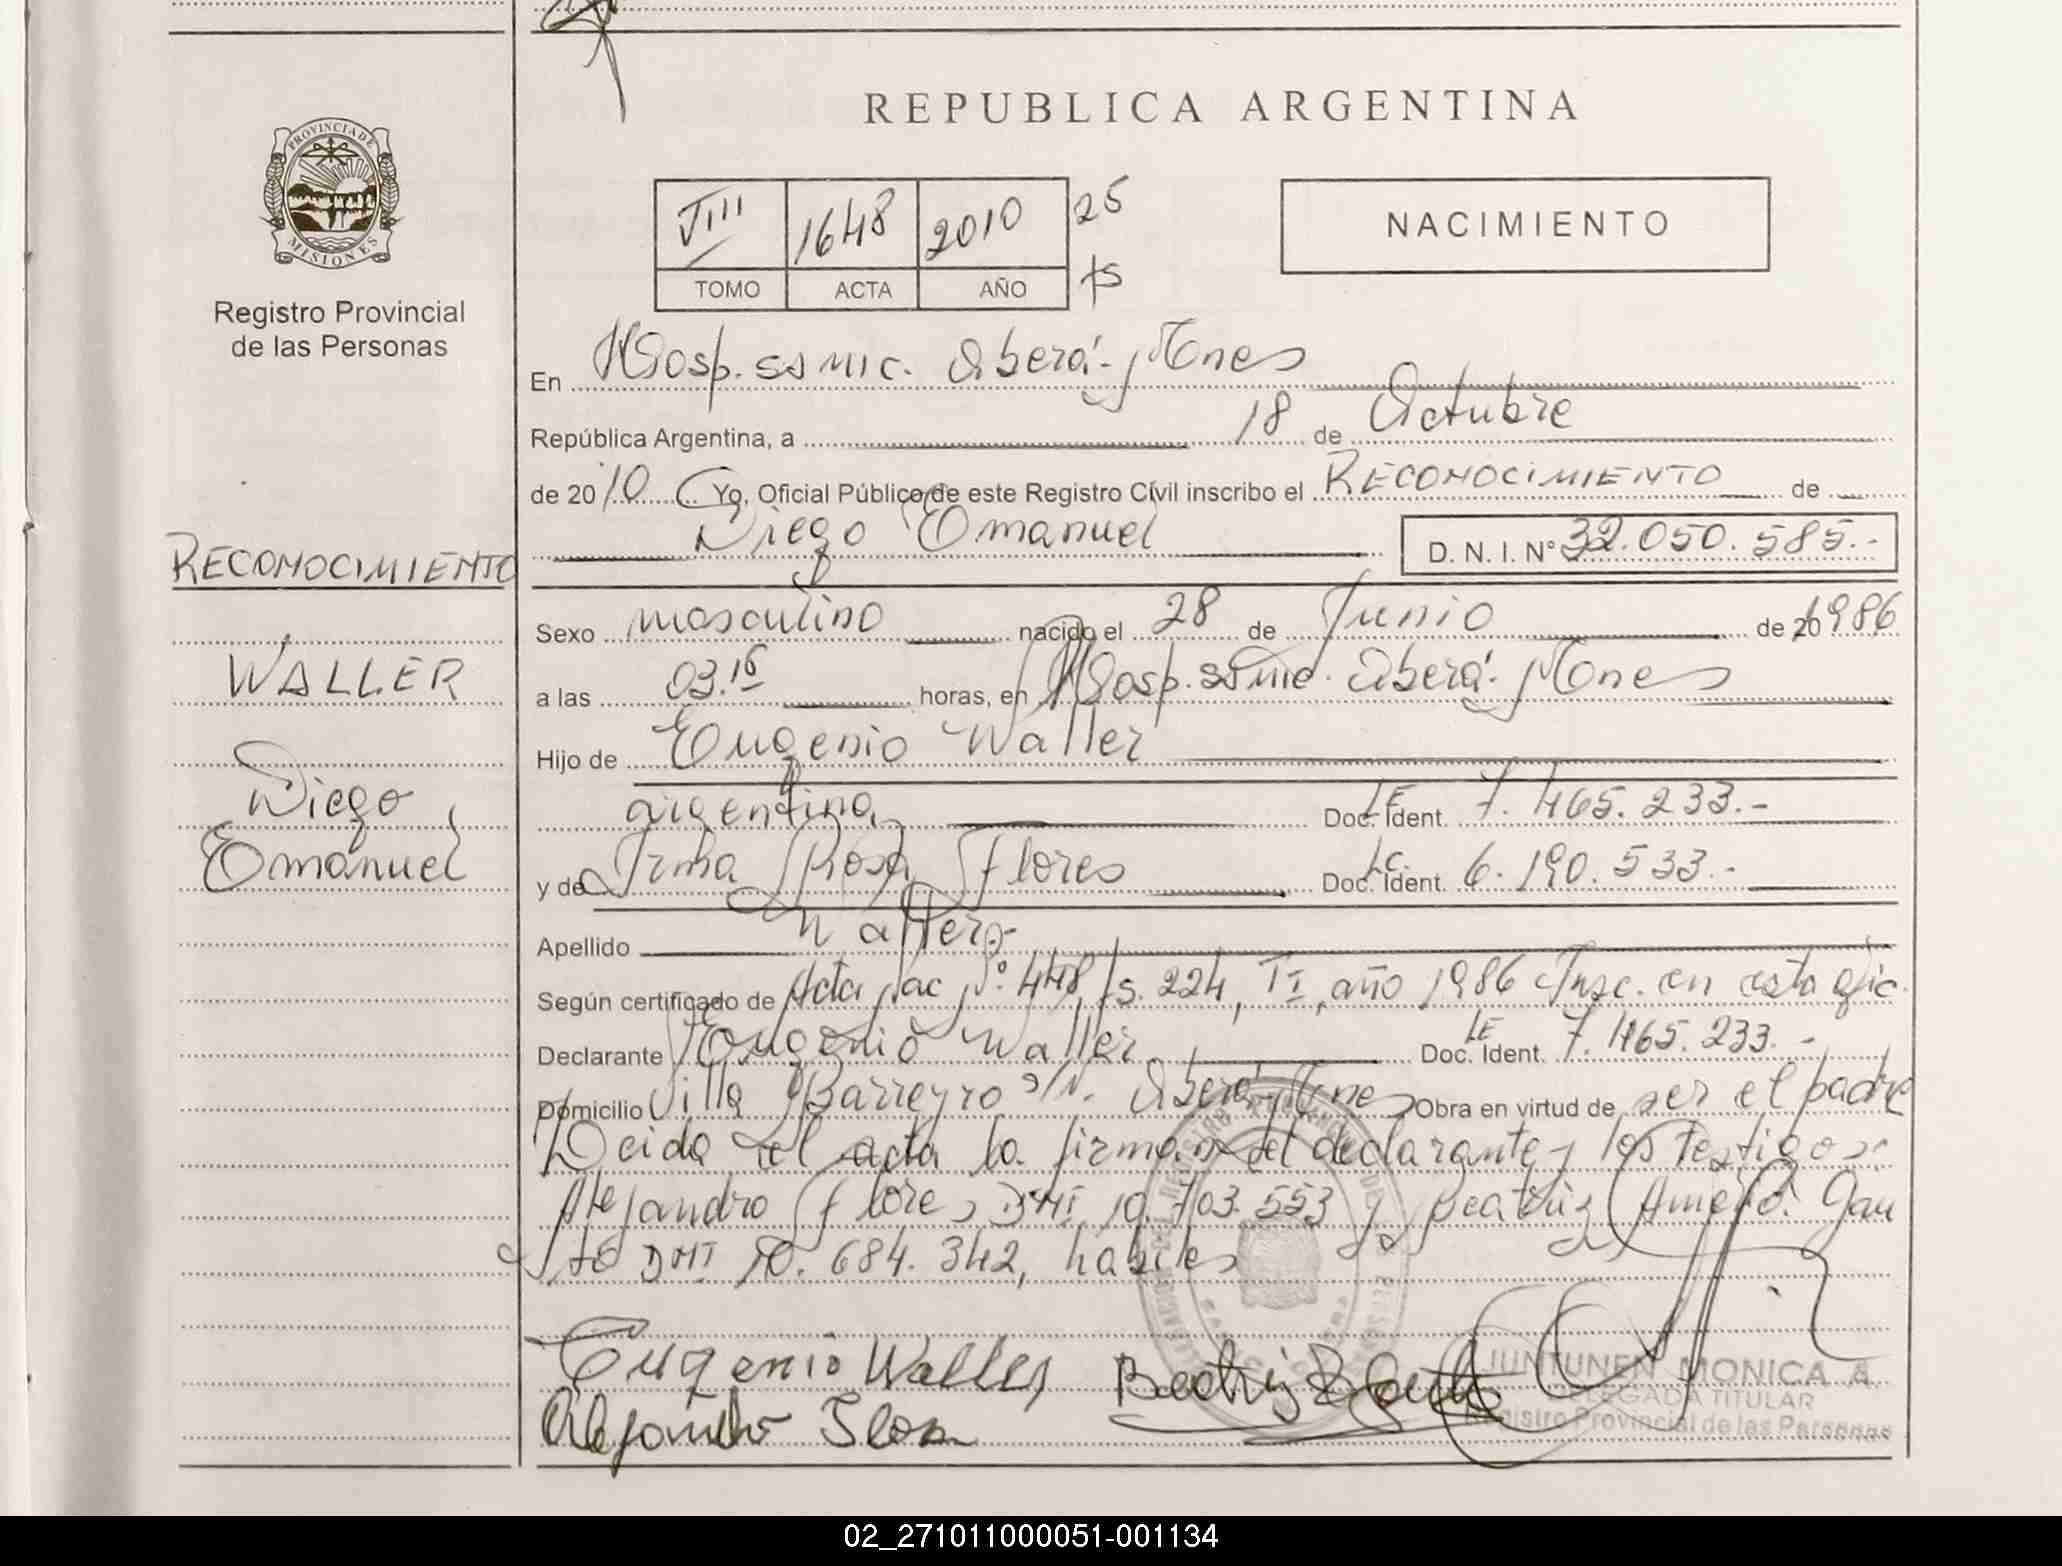 REPUBLICA ARGENTINA
PROVINCIA DE MISIONES
Registro Provincial
de las Personas
VIII 1648 2010 25
TOMO ACTA AÑO
NACIMIENTO
En Hosp. SS MIC. Oberá - Mnes
República Argentina, a 18 de Octubre
de 2010 Yo, Oficial Público de este Registro Civil inscribo el RECONOCIMIENTO de
Diego Emanuel D. N. I. N° 32.050.585.-
RECONOCIMIENTO
WALLER
Diego
Emanuel
Sexo masculino nacido el 28 de Junio de 20 1986
a las 03.15 horas, en Hosp. SS Mic. Oberá - Mnes
Hijo de Eugenio Waller
argentina, Doc. Ident. LE 7.465.233.-
y de Irma Rosa Flores Doc. Ident. LC. 6.190.533.-
Apellido Waller.-
Según certificado de Acta Nac N° 448, fs. 224, T I, año 1986 Insc. en esta ofic.
Declarante Eugenio Waller Doc. Ident. LE 7.465.233.-
Domicilio Villa Barreyro s/N. Oberá Mnes Obra en virtud de ser el padre
Leida el acta la firman el declarante y los testigos:
Alejandro Flores DNI 10.703.553 y Beatriz
DNI 10.684.342, habiles
Eugenio Waller
Alejandro Flores
JUNTUNEN MONICA A.
DELEGADA TITULAR
Registro Provincial de las Personas
02_271011000051-001134